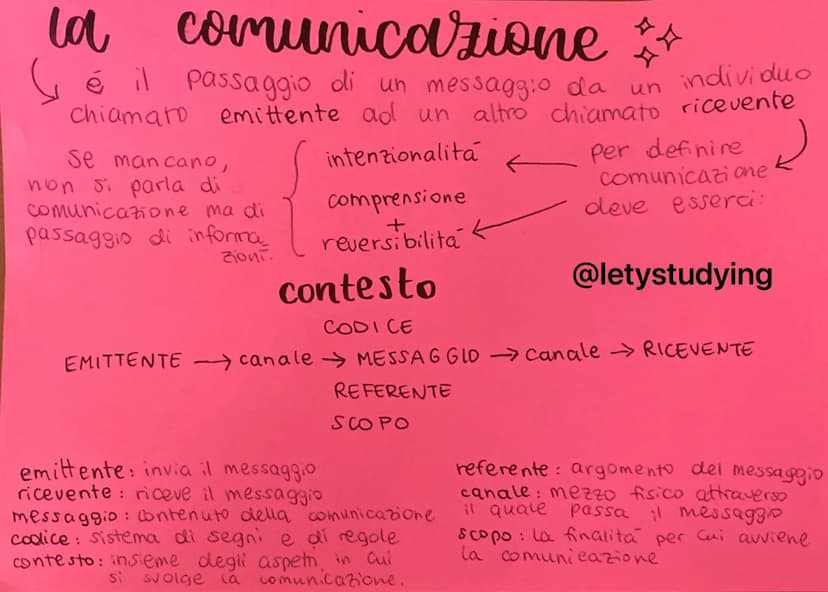 la comunicazione
é il passaggio di un messaggio da un individuo
chiamato emittente ad un altro chiamato ricevente
se mancano,
non si parla di
comunicazione ma di
passaggio di informa_
zioni.
intenzionalitá
comprensione
+
reversibilitá
per definire
comunicazione
deve esserci:
@letystudying
contesto
CODICE
EMITTENTE → canale → MESSAGGIO → canale → RICEVENTE
REFERENTE
SCOPO
emittente: invia il messaggio
ricevente: riceve il messaggio
messaggio: contenuto della comunicazione
codice: sistema di segni e di regole
contesto: insieme degli aspetti in cui
si svolge la comunicazione.
referente: argomento del messaggio
canale: mezzo fisico attraverso
il quale passa il messaggio
scopo: la finalitá per cui avviene
la comunicazione